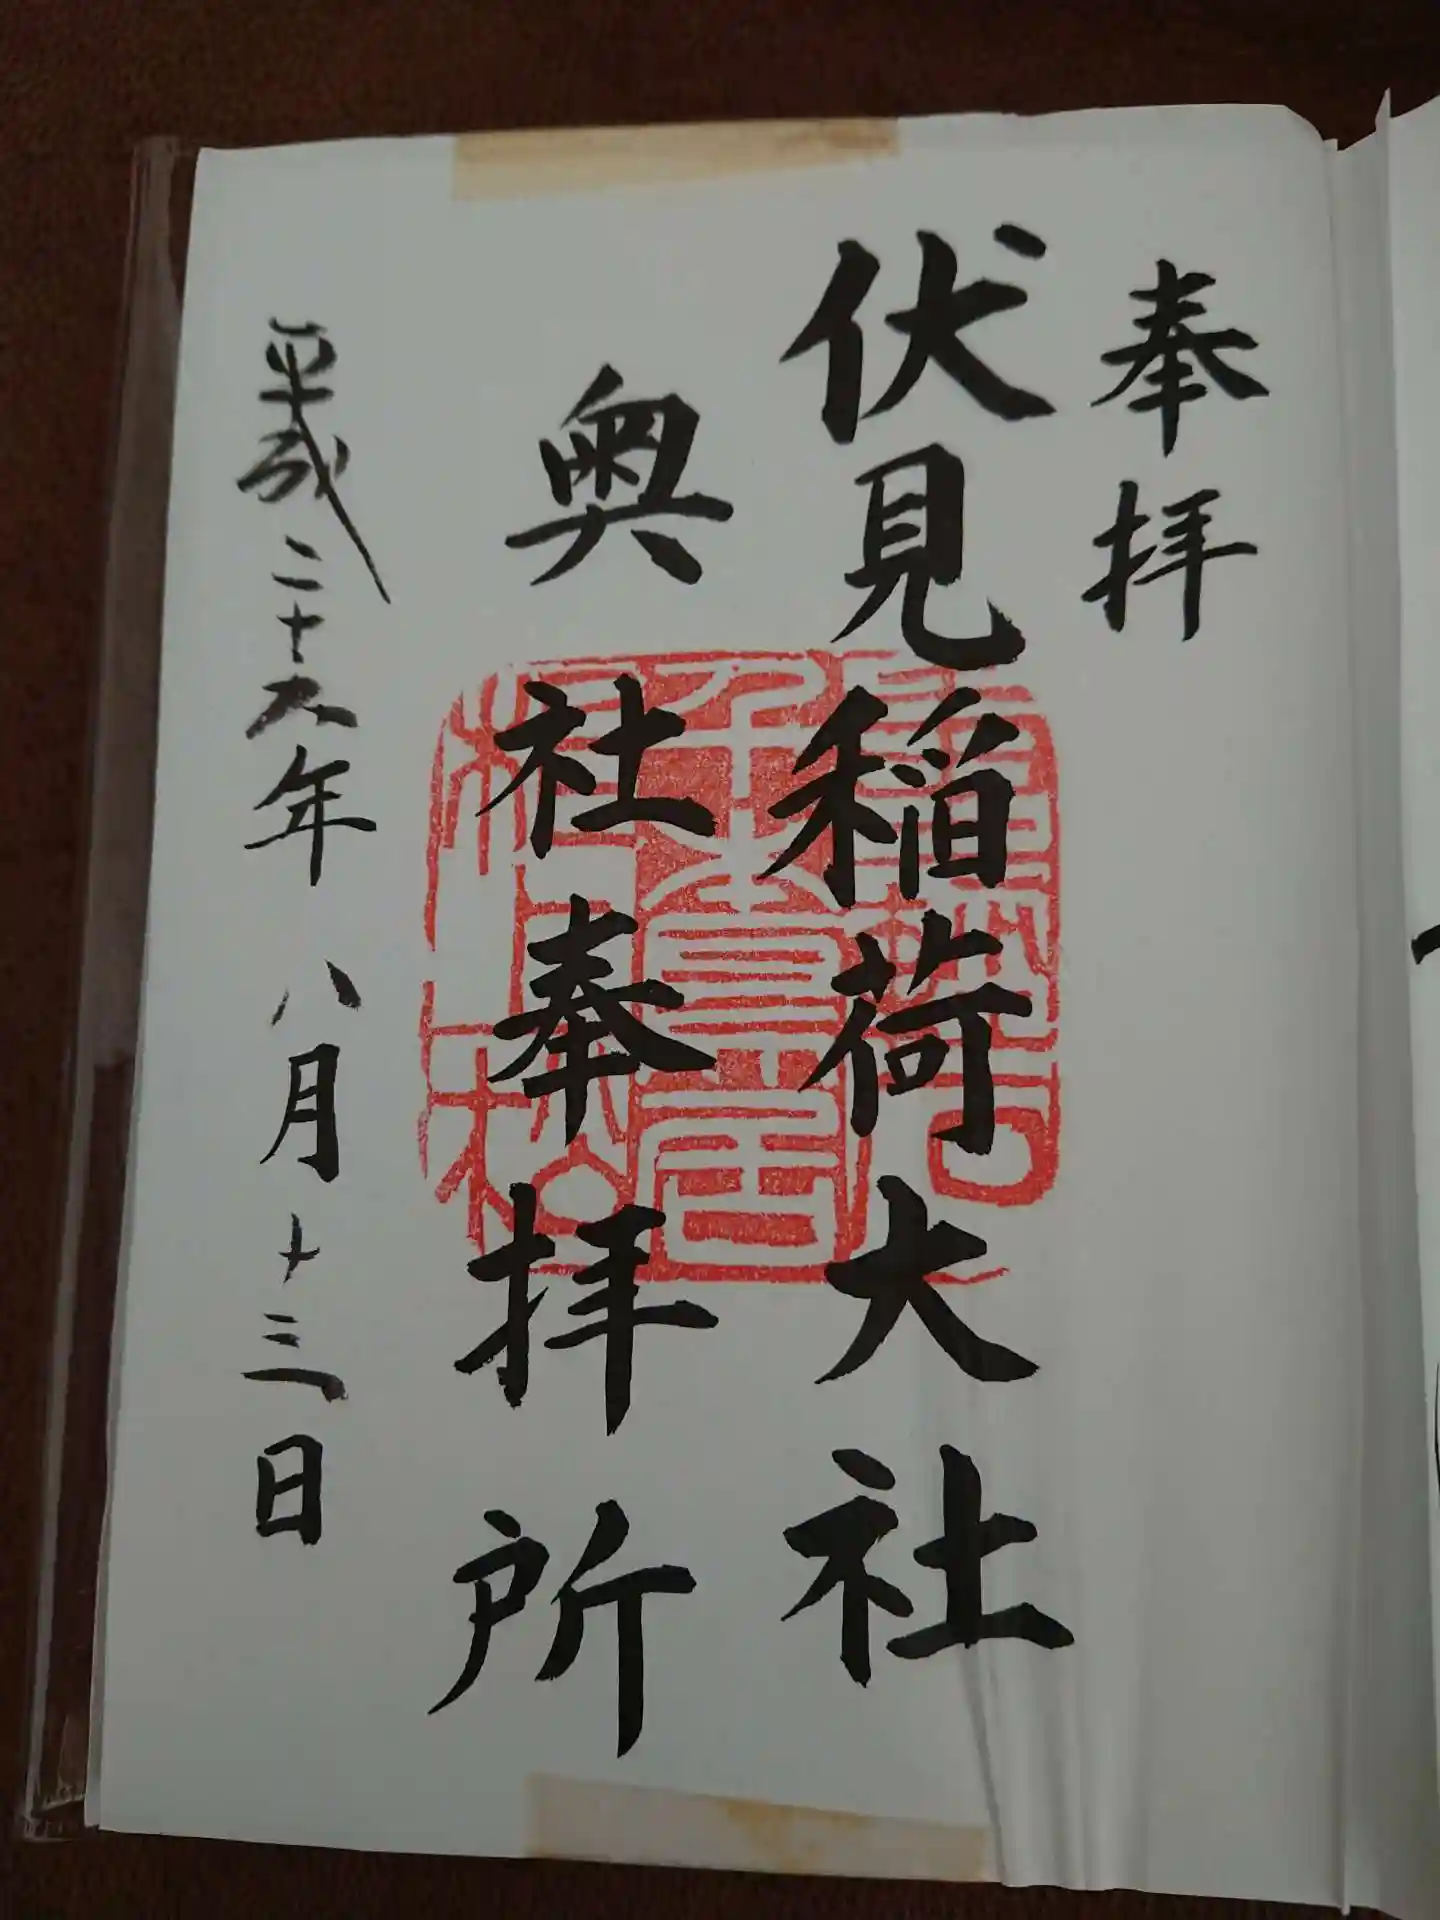 奉拝
伏見稲荷大社
奥社奉拝所
平成二十九年八月十三日